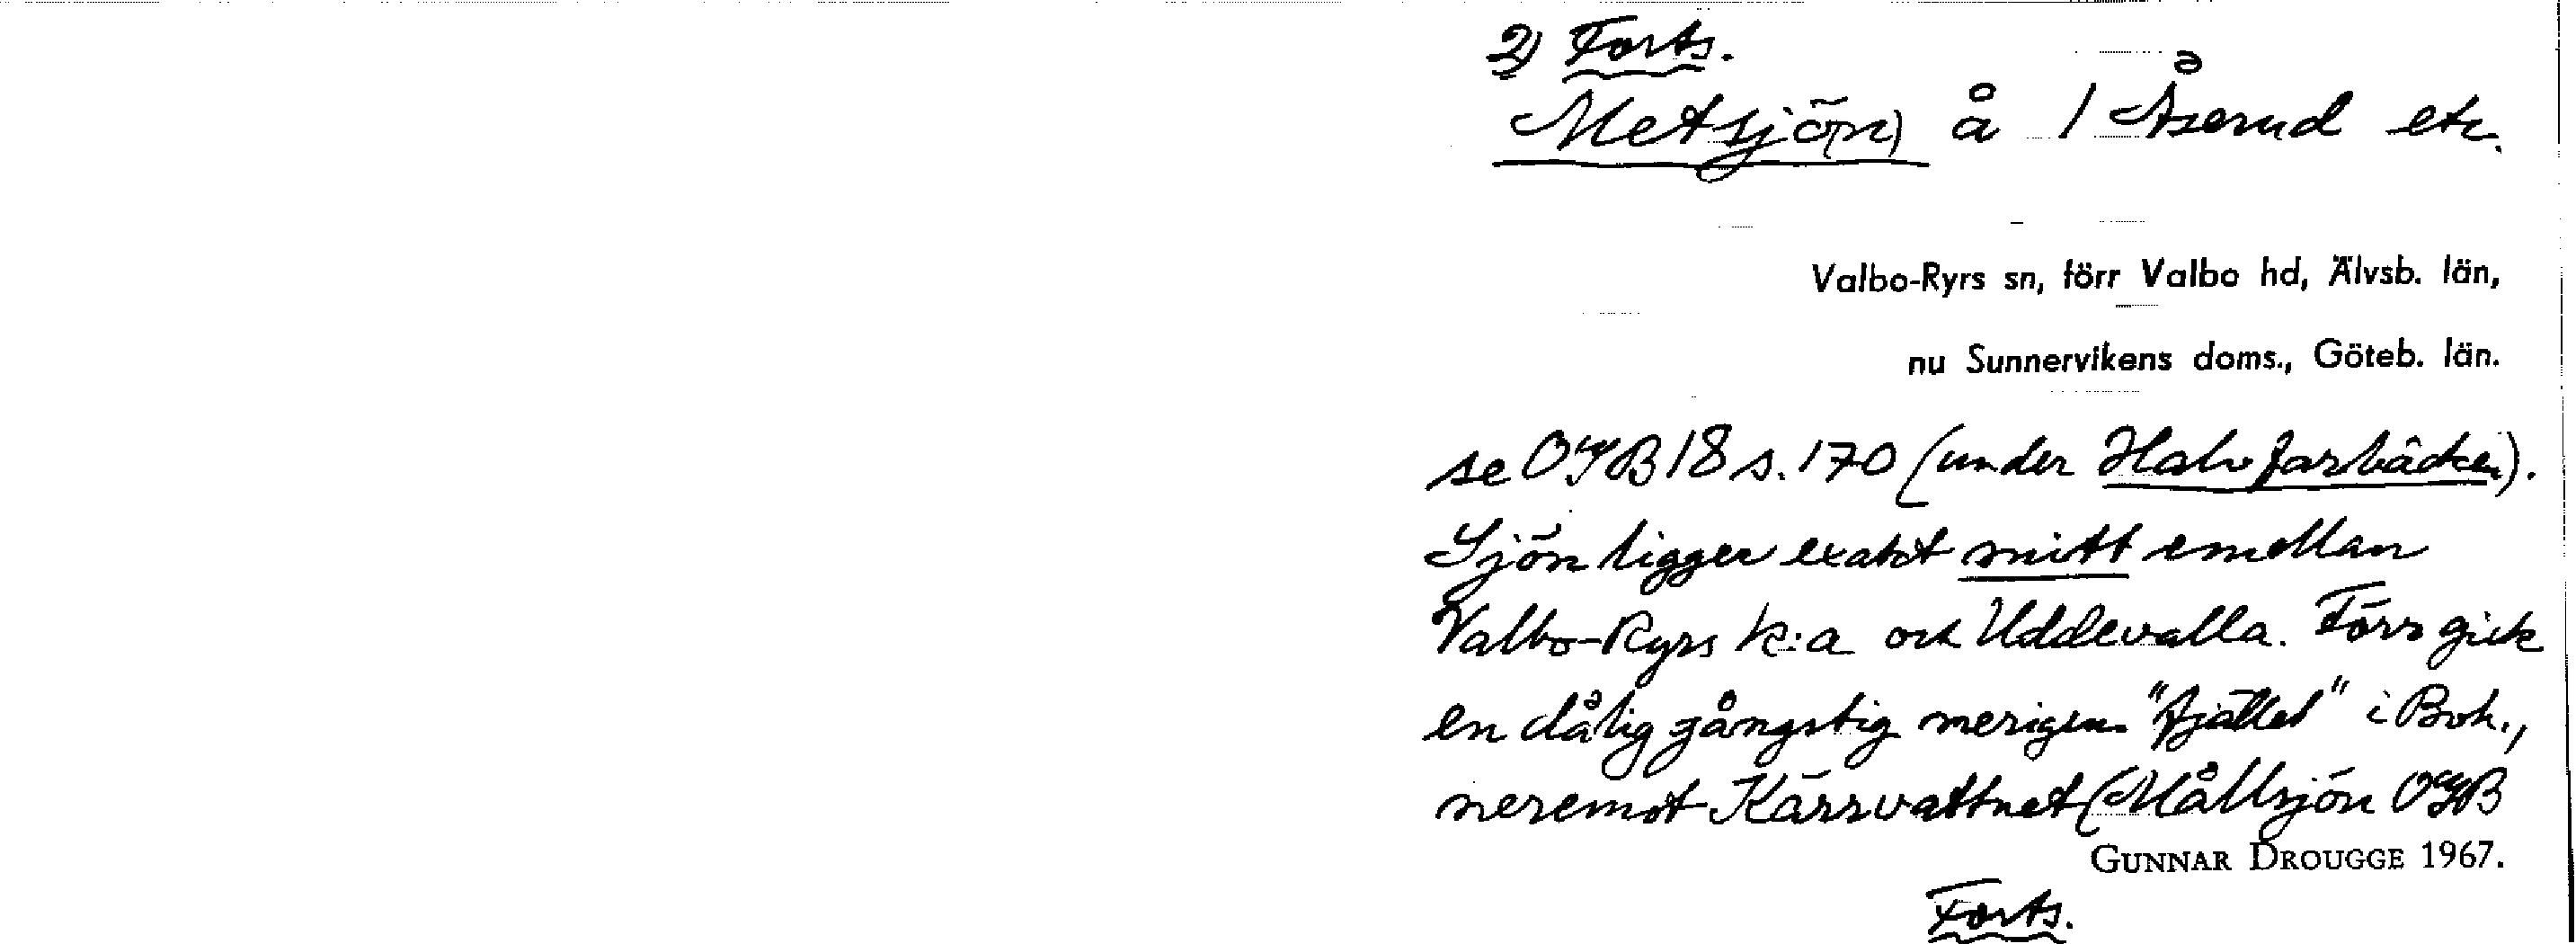 2) Forts.
Metsjön) å 1 Åserud etc.
Valbo-Ryrs sn, förr Valbo hd, Älvsb. län,
nu Sunnervikens doms., Göteb. län.
se OGB 18 s. 170 (under Halvfarbäcken).
Sjön ligger exakt mitt emellan
Valbo-Ryrs k:a och Uddevalla. Förr gick
en dålig gångstig "fjället" i Boh.,
neremot Kärrvattnet (Mållsjön OGB
GUNNAR DROUGGE 1967.
Forts.